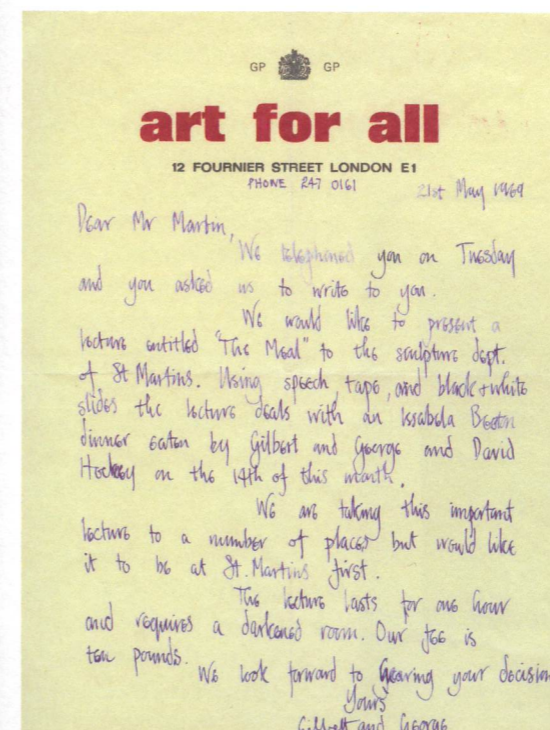 GP GP
art for all
12 FOURNIER STREET LONDON E1
PHONE 247 0161
21st May 1969
Dear Mr Martin,
We telephoned you on Tuesday
and you asked us to write to you.
We would like to present a
lecture entitled "The Meal" to the sculpture dept.
of St Martins. Using speech, tape, and black + white
slides the lecture deals with an Issabela Beeton
dinner eaten by Gilbert and George and David
Hockney on the 14th of this month.
We are taking this important
lecture to a number of places but would like
it to be at St. Martins first.
The lecture lasts for one hour
and requires a darkened room. Our fee is
ten pounds.
We look forward to hearing your decision
Yours
Gilbert and George